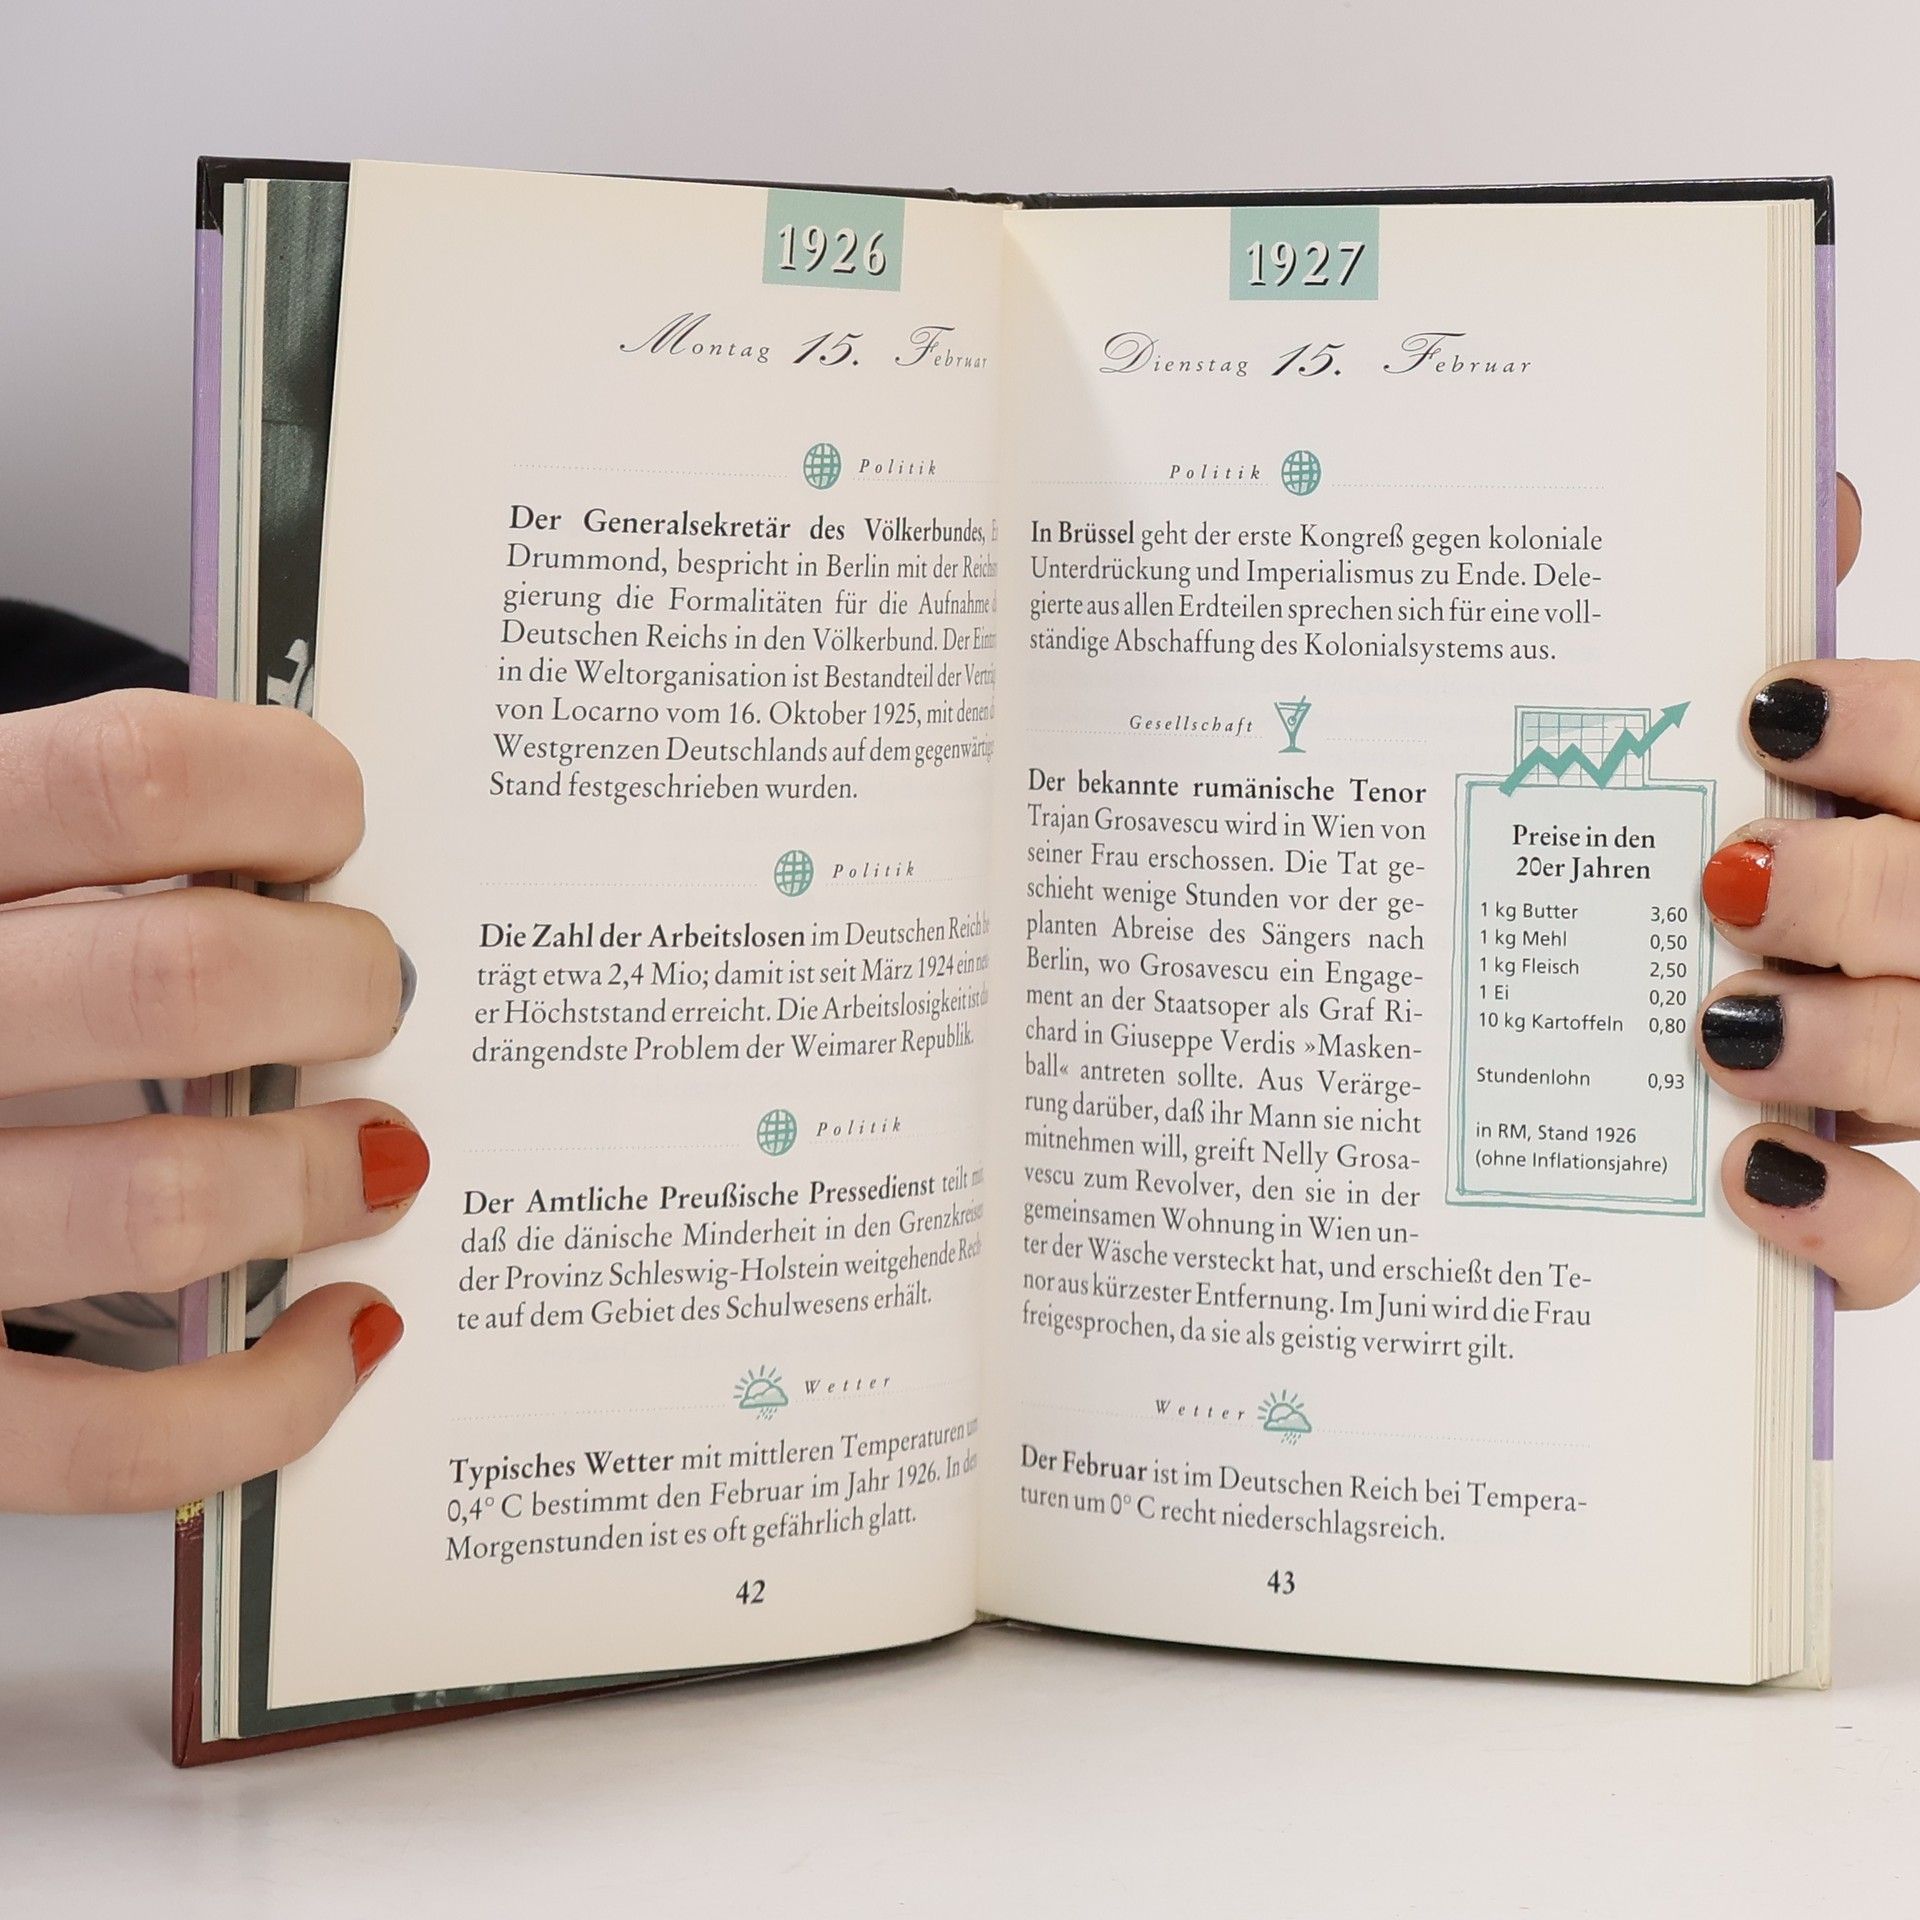 1926
Montag 15. Februar
Politik
Der Generalsekretär des Völkerbundes,
Drummond, bespricht in Berlin mit der
gierung die Formalitäten für die Aufnahme
Deutschen Reichs in den Völkerbund. Der
in die Weltorganisation ist Bestandteil der
von Locarno vom 16. Oktober 1925, mit denen
Westgrenzen Deutschlands auf dem
Stand festgeschrieben wurden.
Politik
Die Zahl der Arbeitslosen im Deutschen Reich
trägt etwa 2,4 Mio; damit ist seit März 1924 ein
er Höchststand erreicht. Die Arbeitslosigkeit ist
drängendste Problem der Weimarer Republik.
Politik
Der Amtliche Preußische Pressedienst teilt
daß die dänische Minderheit in den Grenzkreisen
der Provinz Schleswig-Holstein weitgehende
te auf dem Gebiet des Schulwesens erhält.
Wetter
Typisches Wetter mit mittleren Temperaturen
0,4° C bestimmt den Februar im Jahr 1926. In den
Morgenstunden ist es oft gefährlich glatt.
42
1927
Dienstag 15. Februar
Politik
In Brüssel geht der erste Kongreß gegen koloniale
Unterdrückung und Imperialismus zu Ende. Dele-
gierte aus allen Erdteilen sprechen sich für eine voll-
ständige Abschaffung des Kolonialsystems aus.
Gesellschaft
Der bekannte rumänische Tenor
Trajan Grosavescu wird in Wien von
seiner Frau erschossen. Die Tat ge-
schieht wenige Stunden vor der ge-
planten Abreise des Sängers nach
Berlin, wo Grosavescu ein Engage-
ment an der Staatsoper als Graf Ri-
chard in Giuseppe Verdis »Masken-
ball« antreten sollte. Aus Verärge-
rung darüber, daß ihr Mann sie nicht
mitnehmen will, greift Nelly Grosa-
vescu zum Revolver, den sie in der
gemeinsamen Wohnung in Wien un-
ter der Wäsche versteckt hat, und erschießt den Te-
nor aus kürzester Entfernung. Im Juni wird die Frau
freigesprochen, da sie als geistig verwirrt gilt.
Preise in den
20er Jahren
1 kg Butter 3,60
1 kg Mehl 0,50
1 kg Fleisch 2,50
1 Ei 0,20
10 kg Kartoffeln 0,80
Stundenlohn 0,93
in RM, Stand 1926
(ohne Inflationsjahre)
Wetter
Der Februar ist im Deutschen Reich bei Tempera-
turen um 0° C recht niederschlagsreich.
43